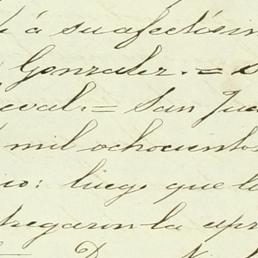 á su afectísim
Gonzalez.= S
eval.= San Jua
mil ochocientos
ico: luego que la
tregaron la apr